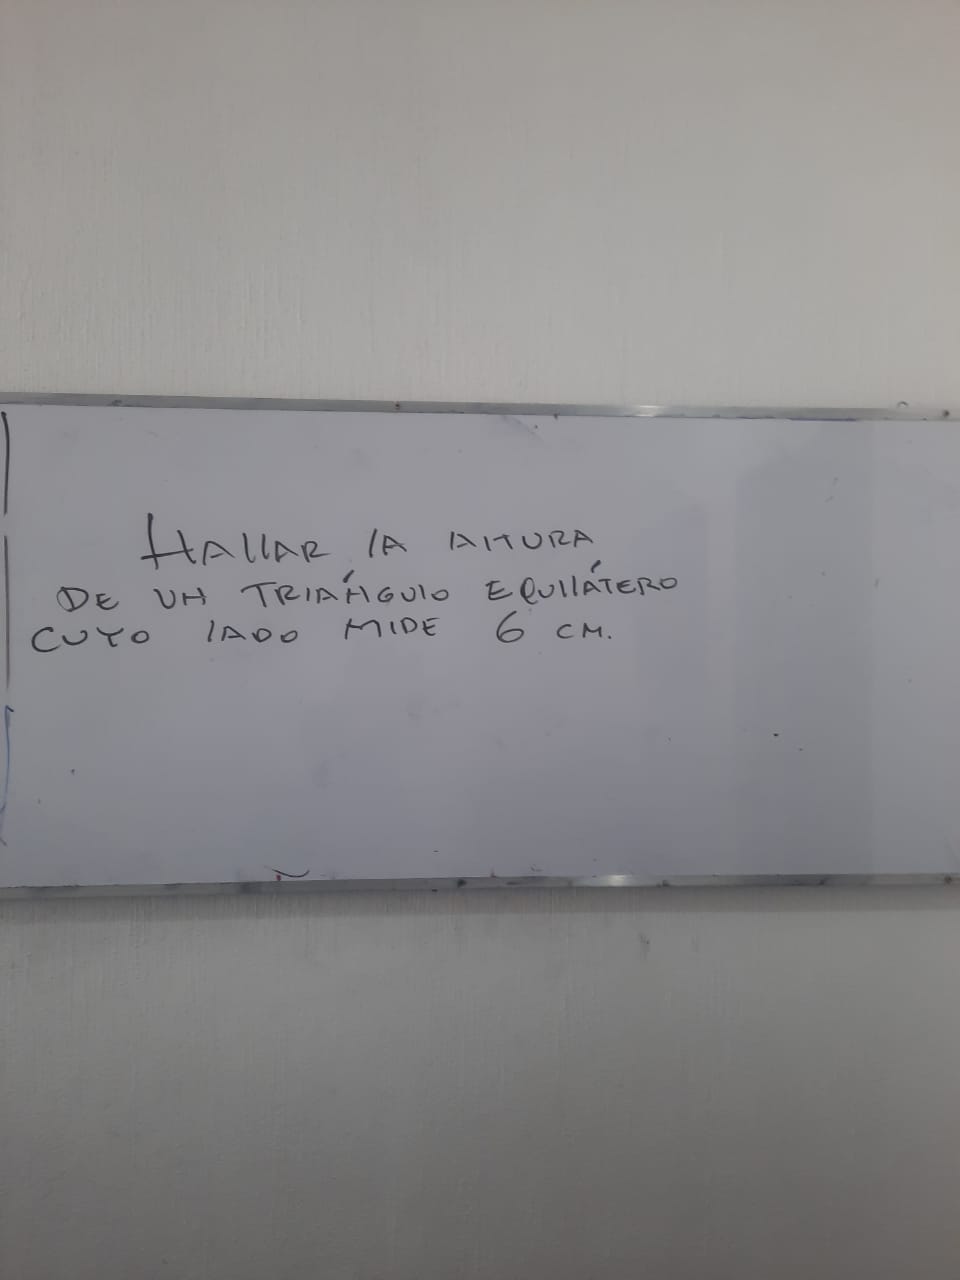 HALLAR LA ALTURA
DE UN TRIÁNGULO EQUILÁTERO
CUYO LADO MIDE 6 CM.